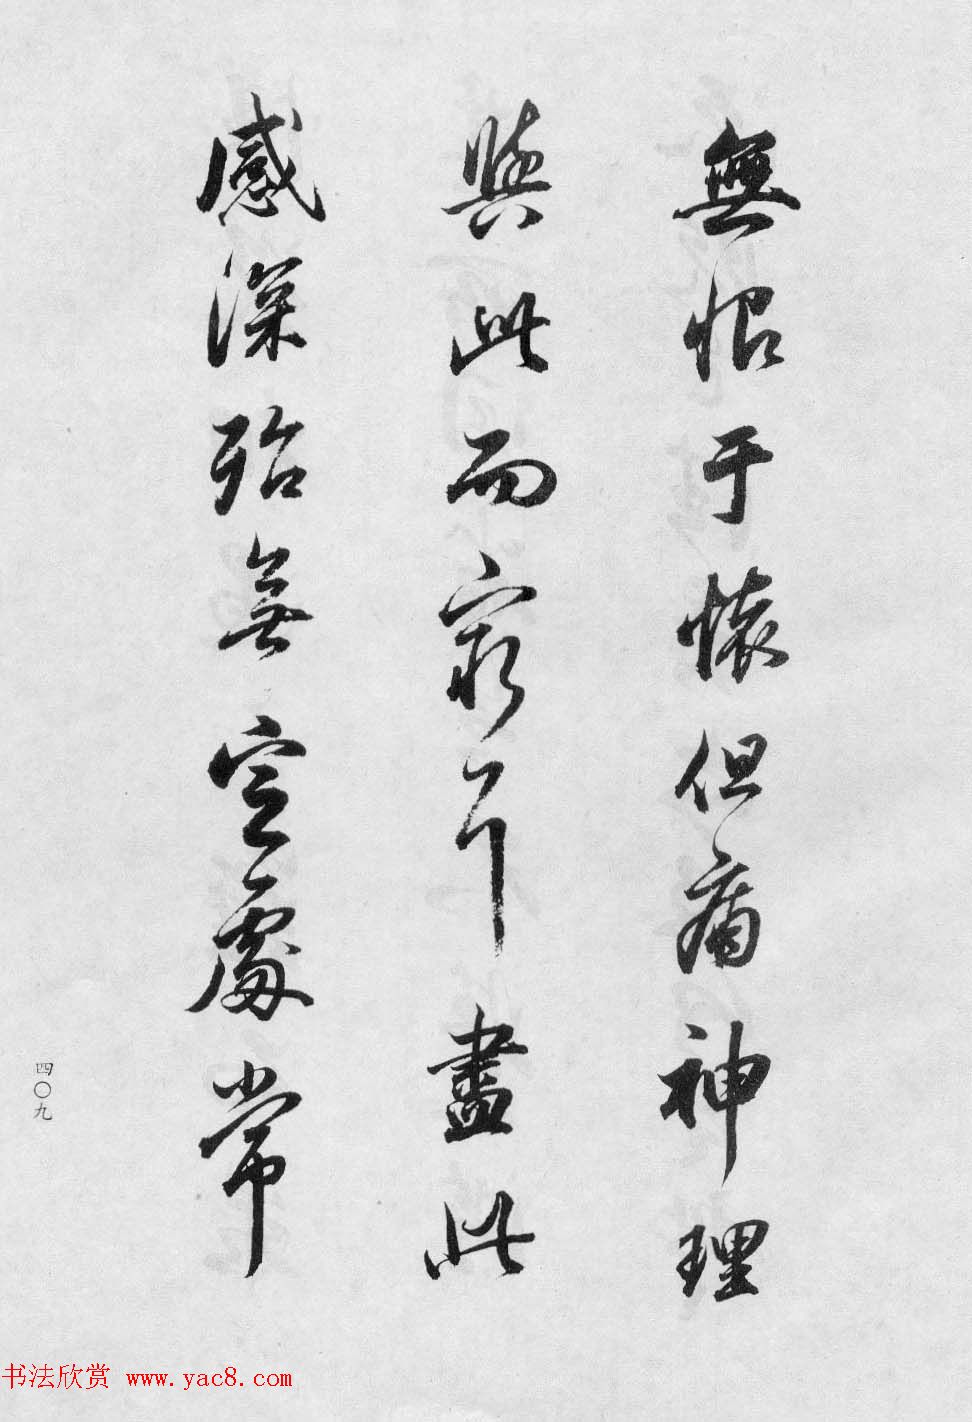 無恨于懷但痛神理
與此而窮耳盡此
感深殆無置處常
四〇九
书法欣赏 www.yac8.com